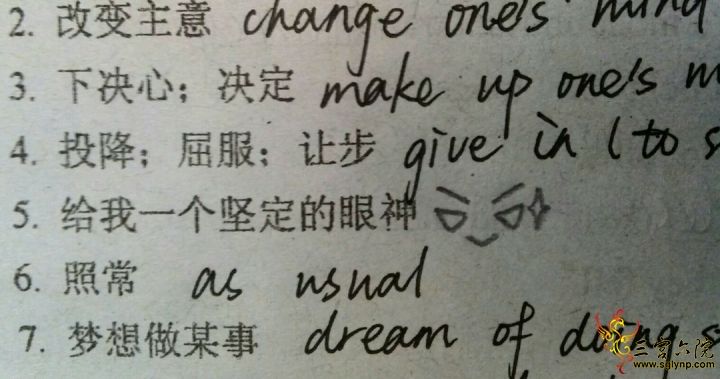 2. 改变主意 change one's mind
3. 下决心；决定 make up one's m
4. 投降；屈服；让步 give in (to s
5. 给我一个坚定的眼神
6. 照常 as usual
7. 梦想做某事 dream of doing s
三宫六院
www.sglynp.com